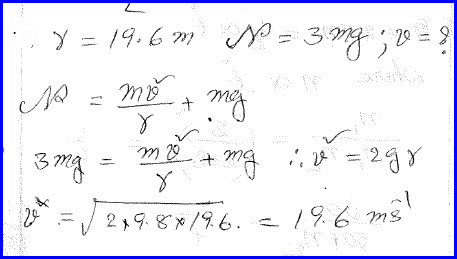 ∴ r = 19.6 m N = 3mg ; v = ?
N = mv²/r + mg
3mg = mv²/r + mg ∴ v² = 2gr
v = √2×9.8×19.6. = 19.6 ms⁻¹